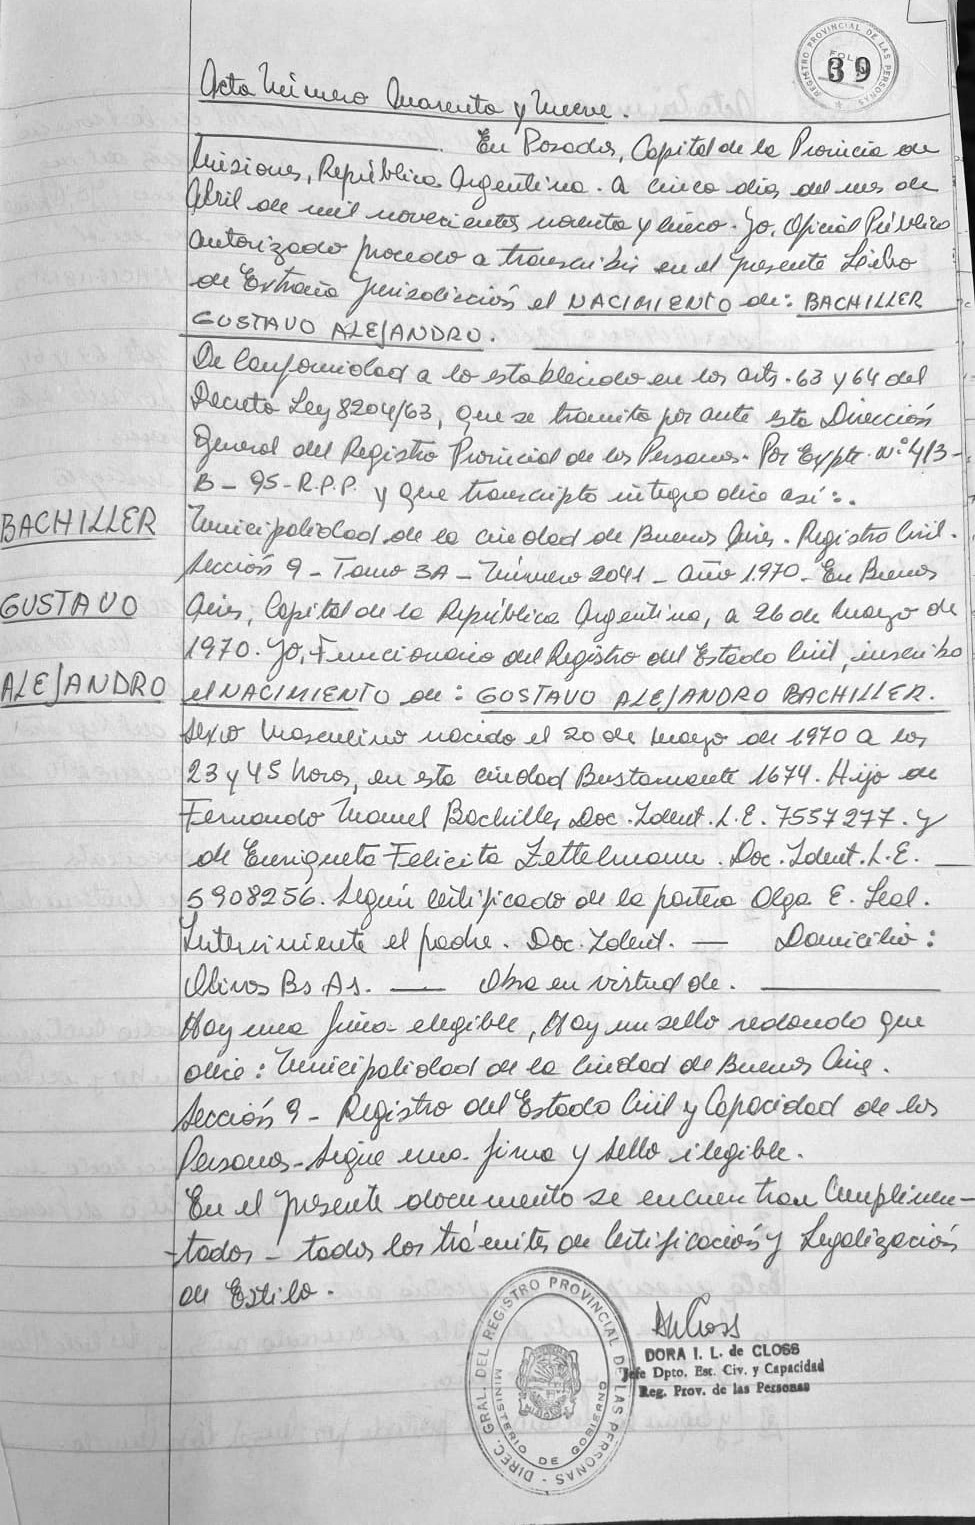 REGISTRO PROVINCIAL DE LAS PERSONAS
FOLIO
39
Acta Número Cuarenta y Nueve.
En Posadas, Capital de la Provincia de
Misiones, República Argentina. a cinco días del mes de
Abril de mil novecientos noventa y cinco. Yo, Oficial Público
autorizado procedo a transcribir en el presente Libro
de Extraña Jurisdicción el NACIMIENTO de: BACHILLER
GUSTAVO ALEJANDRO.
De Conformidad a lo establecido en los arts. 63 y 64 del
Decreto Ley 8204/63, que se tramita por ante esta Dirección
General del Registro Provincial de las Personas. Por Expte. Nº 413-
B-95-R.P.P. y que transcripto integro dice así:.
BACHILLER
GUSTAVO
ALEJANDRO
Municipalidad de la ciudad de Buenos Aires. Registro Civil.
Sección 9 - Tomo 3A - Número 2041 - Año 1.970 - En Buenos
Aires, Capital de la República Argentina, a 26 de Marzo de
1970. Yo, Funcionario del Registro del Estado Civil, inscribo
el NACIMIENTO de: GUSTAVO ALEJANDRO BACHILLER.
Sexo Masculino nacido el 20 de Marzo de 1970 a las
23 y 45 horas, en esta ciudad Bustamante 1674. Hijo de
Fernando Manuel Bachiller, Doc. Ident. L.E. 7557277. y
de Enriqueta Felicita Zettelmann. Doc. Ident. L.E. —
5908256. Según Certificado de la partera Olga E. Leal.
Interviniente el padre. Doc. Ident. — Domicilio:
Olivos Bs. As. — Obra en virtud de.
Hay una firma elegible, Hay un sello redondo que
dice: Municipalidad de la Ciudad de Buenos Aires.
Sección 9 - Registro del Estado Civil y Capacidad de las
Personas - Sigue una firma y sello ilegible.
En el presente documento se encuentran Cumplimen-
-tados - todos los trámites de Certificación y Legalización
de Estilo.
DIREC. GRAL. DEL REGISTRO PROVINCIAL DE LAS PERSONAS -
MINISTERIO DE GOBIERNO
DORA I. L. de CLOSS
Jefe Dpto. Est. Civ. y Capacidad
Reg. Prov. de las Personas